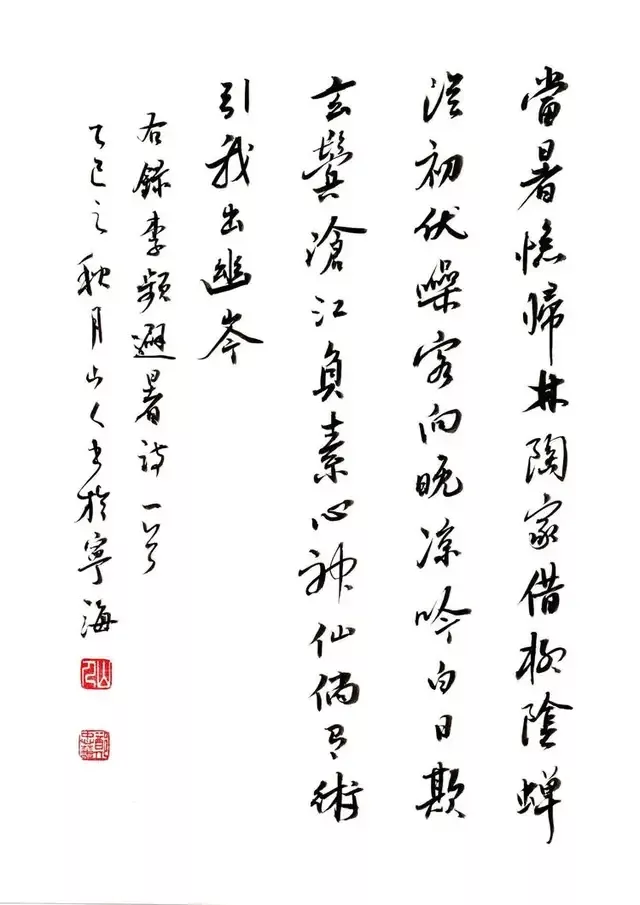 當暑憶歸林陶家借柳陰蟬
從初伏噪客向晚凉吟白日欺
玄鬢滄江負素心神仙倘有術
引我出幽岑
右録李頻避暑詩一首
乙巳之秋月山人書於寧海
山人